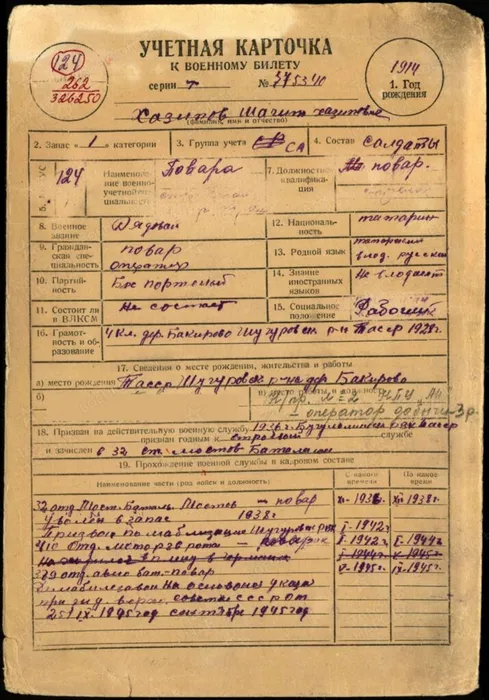 124
262
326250
УЧЕТНАЯ КАРТОЧКА
К ВОЕННОМУ БИЛЕТУ
серии т № 375340
1914
1. Год рождения
Хазипов Шагит Хазипович
(фамилия, имя и отчество)
2. Запас «1» категории
3. Группа учета СА
4. Состав солдаты
5. ВУС 124
Наименование военно-учетной специальности
Повара
7. Должностная квалификация
повар.
8. Военное звание
Рядовой
12. Национальность
татарин
9. Гражданская специальность
повар
оператор
13. Родной язык
татарский
влад. русский
10. Партийность
Бес портейный
14. Знание иностранных языков
Не владеет
11. Состоит ли в ВЛКСМ
Не состоит
15. Социальное положение
Рабочий
16. Грамотность и образование
4 кл. дер. Бакирово Шугуровск. р-н Тасср 1928г.
17. Сведения о месте рождения, жительства и работы
а) место рождения Тасср Шугуровск р-на дер Бакирово
б)
в) место работы и должность
н/пр. №=2 НПУ "АН"
оператор добычи-3р.
18. Призван на действительную военную службу 1936г Бугульминск РВК Тасср
признан годным к строевой службе
и зачислен в 32 от. мостов Баталион
19. Прохождение военной службы в кадровом составе
Наименование части (род войск и должность)
С какого времени
По какое время
32 отд. Мост. Баталь. Мостов — повар XI-1936г XII 1938г.
Уволен в запас 1938г.
Призван по мабилизации Шугурврик I-1942г
410 отд. моторз рота I-1942г. I-1944г
I-1944г V-1945г
329 отд. авто бат-повар V-1945г IX-1945г.
Димабилизован На основание указа
през ид. верх. совета СССР от
25/IX 1945год сентябрь 1945год